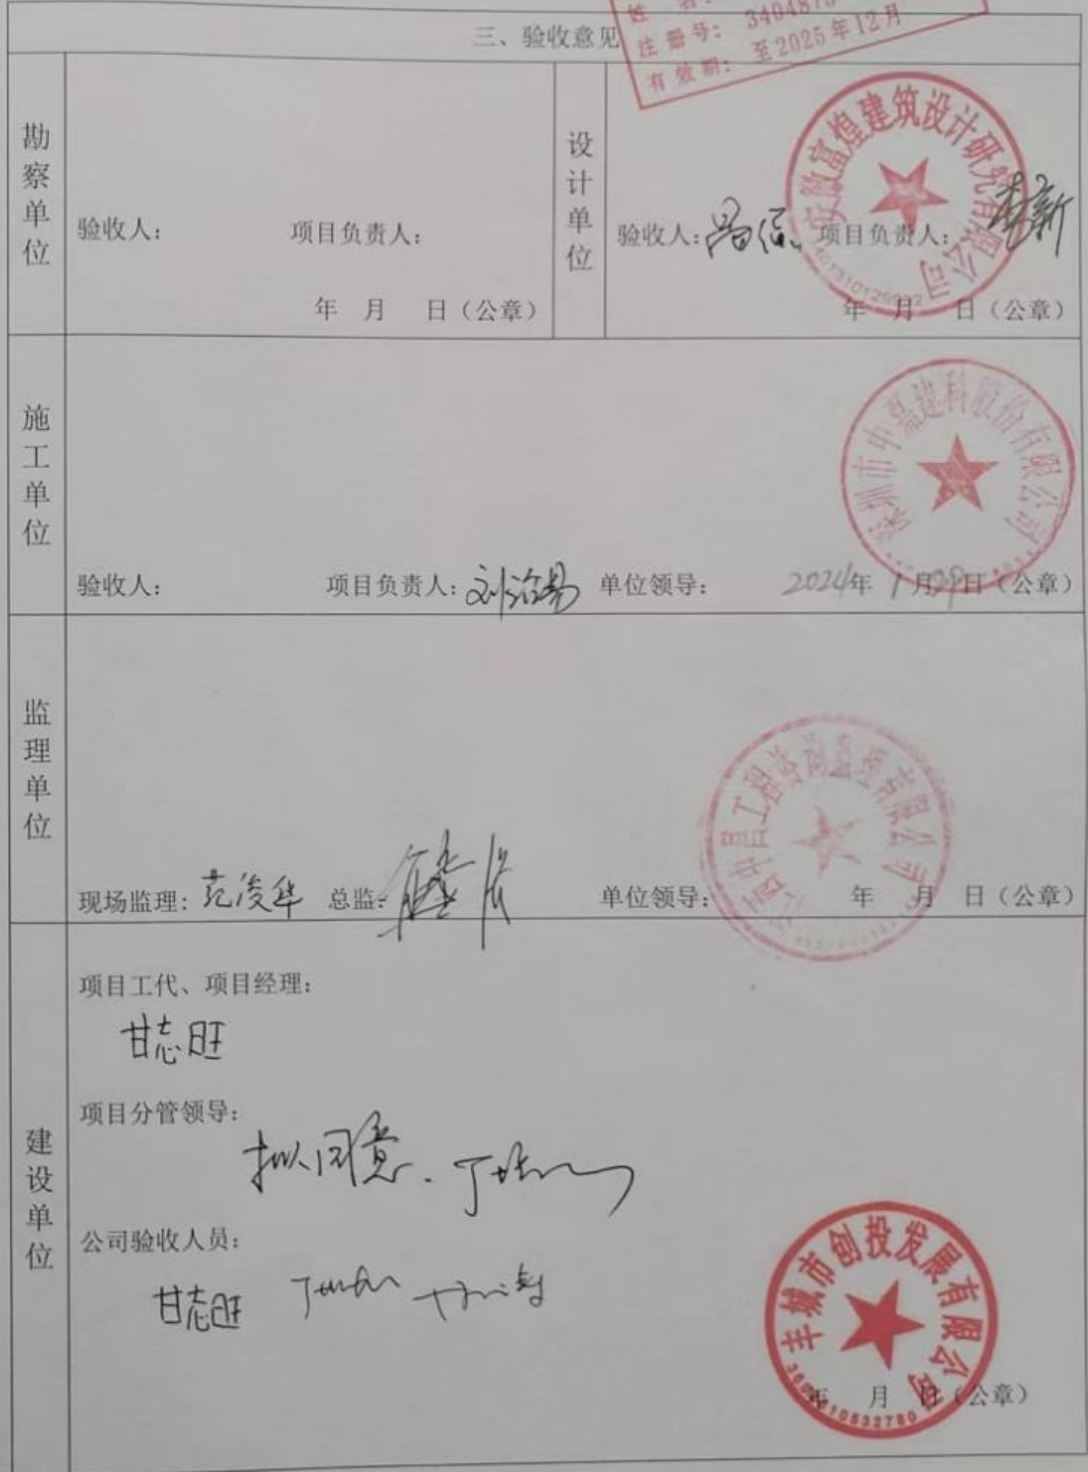 姓名:
注册号: 3404875
有效期: 至2025年12月
三、验收意见
勘察单位
验收人: 项目负责人:
年 月 日(公章)
设计单位
安徽富煌建筑设计研究有限公司
验收人: 项目负责人:
年 月 日(公章)
施工单位
深圳市中磊建科股份有限公司
验收人: 项目负责人: 单位领导: 2024年1月29日(公章)
监理单位
江西中昌工程咨询监理有限公司
现场监理: 范俊华 总监: 单位领导: 年 月 日(公章)
建设单位
项目工代、项目经理:
甘志旺
项目分管领导:
拟同意.
公司验收人员:
甘志旺
丰城市创投发展有限公司
年 月 日(公章)